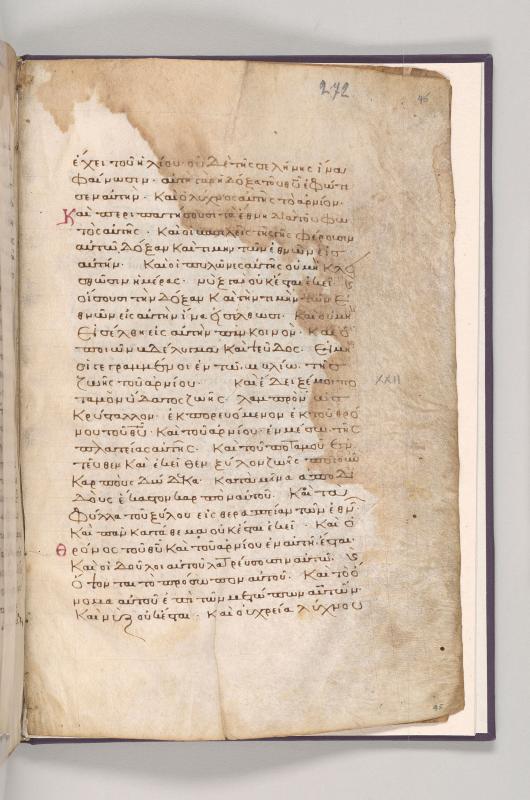 272
46
ἔχει τοῦ ἡλίου οὐδὲ τῆς σελήνης ἵνα
φαίνωσιν · αὐτὴ γὰρ ἡ δόξα τοῦ θῦ ἐφώτι
σεν αὐτήν · Καὶ ὁ λύχνος αὐτῆς τὸ ἀρνίον ·
Καὶ περιπατήσουσι τὰ ἔθνη διὰ τοῦ φω
τὸς αὐτῆς · Καὶ οἱ βασιλεῖς τῆς γῆς φέρουσιν
αὐτῷ δόξαν καὶ τιμὴν τῶν ἐθνῶν εἰς
αὐτήν · Καὶ οἱ πυλῶνες αὐτῆς οὐ μὴ κλει
σθῶσιν ἡμέρας · νὺξ γὰρ οὐκ ἔσται ἐκεῖ
οἴσουσι τὴν δόξαν καὶ τὴν τιμὴν τῶν ἐ
θνῶν εἰς αὐτὴν ἵνα εἰσέλθωσι · Καὶ οὐ μὴ
εἰσέλθῃ εἰς αὐτὴν πᾶν κοινὸν · Καὶ ὁ
ποιῶν βδέλυγμα καὶ ψεῦδος · Εἰ μὴ
οἱ γεγραμμένοι ἐν τῷ βιβλίῳ τῆς
ζωῆς τοῦ ἀρνίου · Καὶ ἔδειξέ μοι πο
XXII
ταμὸν ὕδατος ζωῆς · λαμπρὸν ὡς
κρύσταλλον · ἐκπορευόμενον ἐκ τοῦ θρό
νου τοῦ θῦ · Καὶ τοῦ ἀρνίου · ἐν μέσῳ τῆς
πλατείας αὐτῆς · Καὶ τοῦ ποταμοῦ ἐν
τεῦθεν καὶ ἐκεῖθεν ξύλον ζωῆς ποιοῦν
καρποὺς δώδεκα · Κατὰ μῆνα ἀποδι
δοὺς ἕκαστον καρπὸν αὐτοῦ · Καὶ τὰ
φύλλα τοῦ ξύλου εἰς θεραπείαν τῶν ἐθνῶν ·
Καὶ πᾶν κατάθεμα οὐκ ἔσται ἐκεῖ · Καὶ ὁ
θρόνος τοῦ θῦ καὶ τοῦ ἀρνίου ἐν αὐτῇ ἔσται ·
Καὶ οἱ δοῦλοι αὐτοῦ λατρεύσουσιν αὐτῷ · καὶ
ὄψονται τὸ πρόσωπον αὐτοῦ · Καὶ τὸ ὄ
νομα αὐτοῦ ἐπὶ τῶν μετώπων αὐτῶν ·
Καὶ νὺξ οὐκ ἔσται · Καὶ οὐ χρεία λύχνου
45